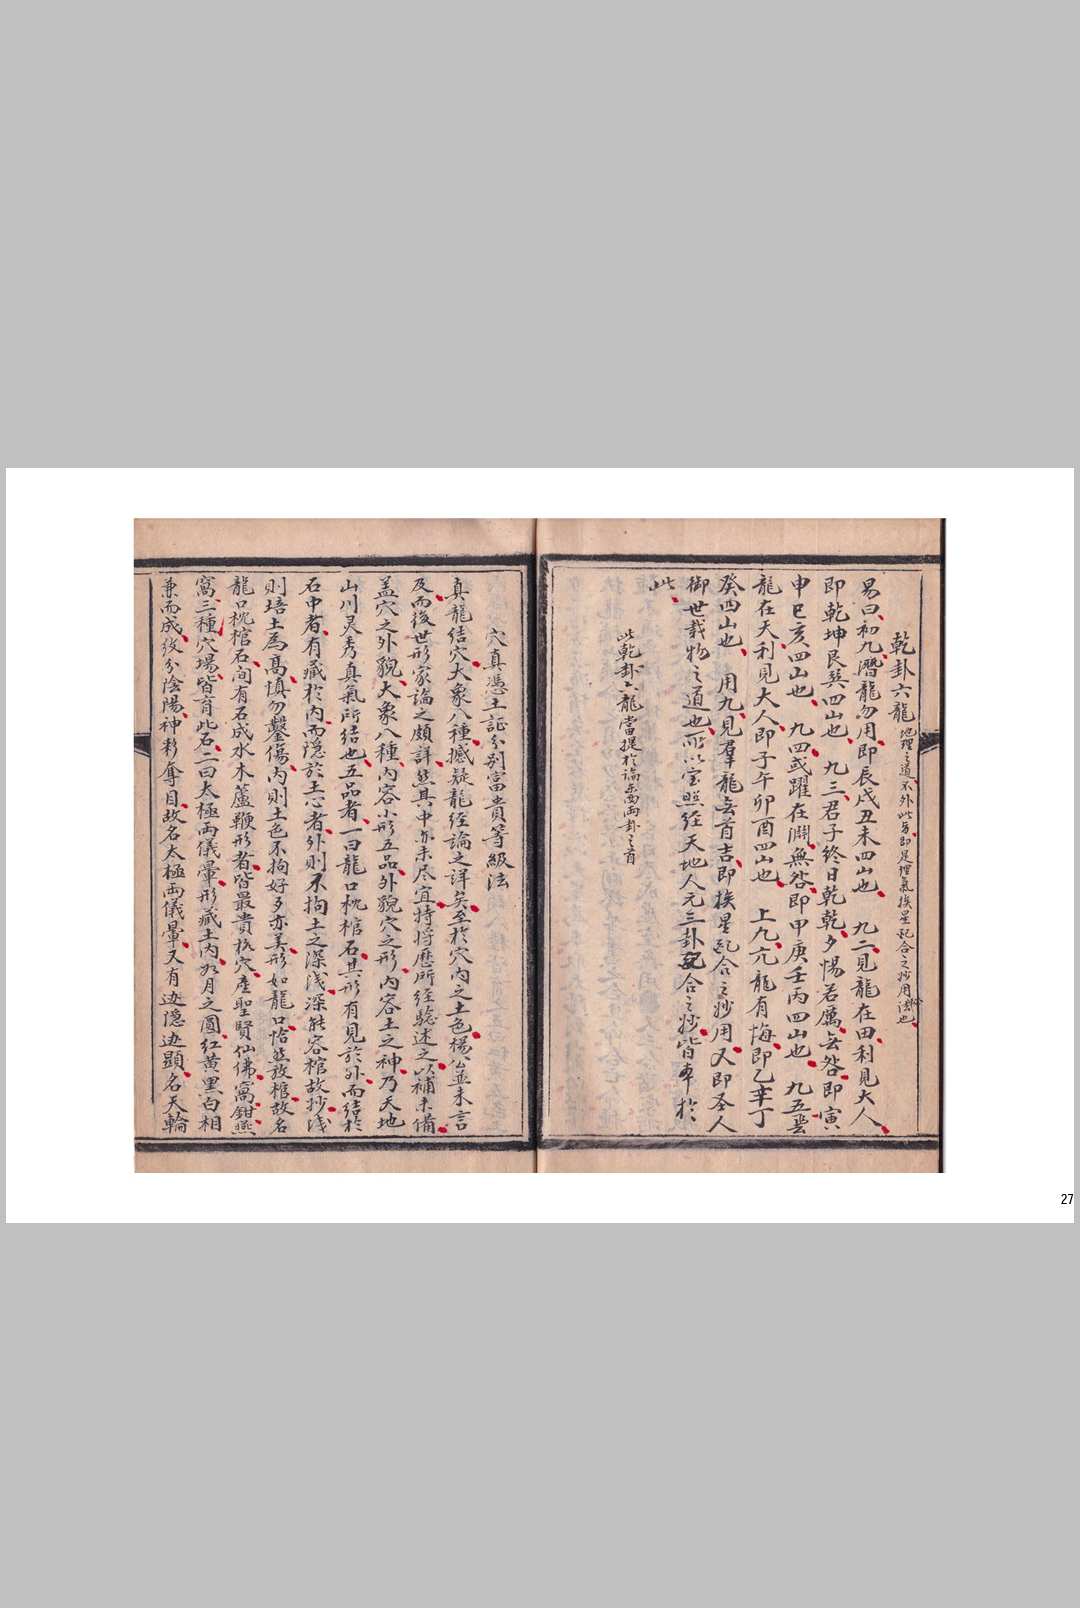 乾卦六龍 地理之道不外此易即是理氣挨星配合之妙用法也
易曰初九潛龍勿用即辰戌丑未四山也 九二見龍在田利見大人
即乾坤艮巽四山也 九三君子終日乾乾夕惕若厲无咎即寅
申巳亥四山也 九四或躍在淵無咎即甲庚壬丙四山也 九五飛
龍在天利見大人即子午卯酉四山也 上九亢龍有悔即乙辛丁
癸四山也 用九見羣龍无首吉即挨星配合之妙用又即圣人
御世載物之道也所以宝照经天地人元三卦配合之妙皆本於
此
此乾卦六龍當提於論東西兩卦之首
穴真憑土証分别富貴等級法
真龍结穴大象八種撼疑龍经論之詳矣至於穴内之土色楊公並未言
及而後世形家論之頗詳然其中亦未尽宜特将歷所经验述之以補未備
盖穴之外貌大象八種内容小形五品外貌穴之形内容土之神乃天地
山川灵秀真氣所结也五品者一曰龍口枕棺石其形有見於外而结於
石中者有藏於内而隐於土心者外則不拘土之深浅深能容棺故抄浅
則培土為高慎勿鑿傷内則土色不拘好歹亦美形如龍口恰然放棺故名
龍口枕棺石间有石成水木蘆鞭形者皆最貴格穴産聖賢仙佛窩鉗燕
窩三種穴場皆有此石二曰太極両儀暈形藏土内如月之圓红黄黑白相
兼而成纹分陰陽神彩奪目故名太極両儀暈又有迹隐迹顯名天輪